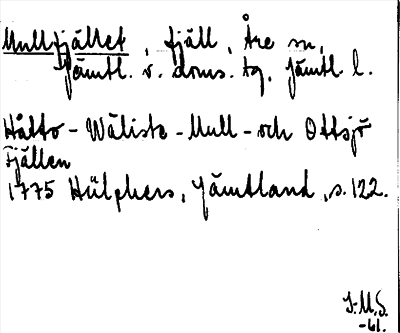 Mullfjället, fjäll, Åre sn,
Jämtl. v. doms. tg, Jämtl. l.
Hålto - Wäliste - Mull - och Ottsjö
Fjällen
1775 Hülphers, Jämtland, s. 122.
J.M.S.
-61.